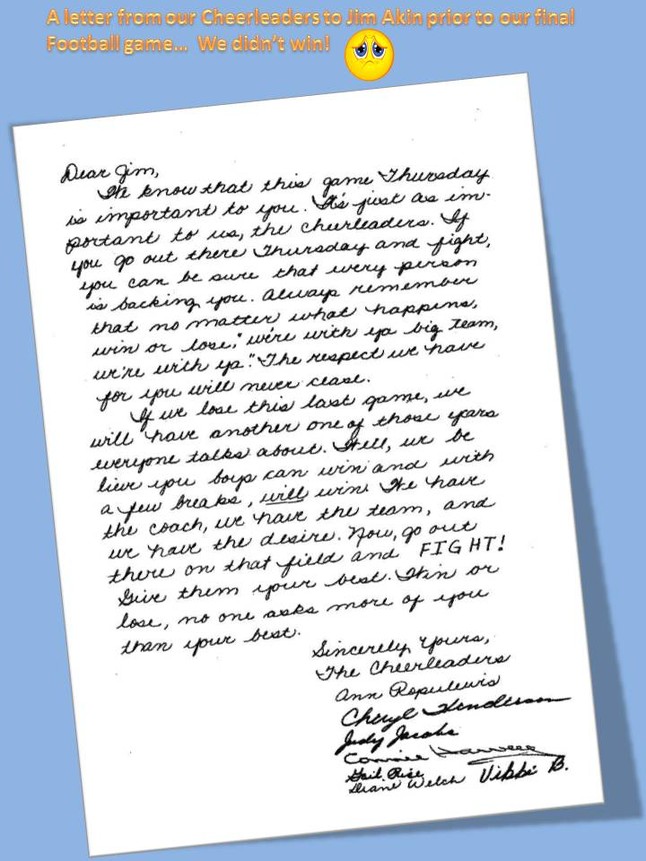 A letter from our Cheerleaders to Jim Akin prior to our final
Football game... We didn't win!
Dear Jim,
We know that this game Thursday
is important to you. It's just as im-
portant to us, the cheerleaders. If
you go out there Thursday and fight,
you can be sure that every person
is backing you. Always remember
that no matter what happens,
win or lose, "we're with ya big team,
we're with ya." The respect we have
for you will never cease.
If we lose this last game, we
will have another one of those years
everyone talks about. Well, we be
lieve you boys can win and with
a few breaks, will win. We have
the coach, we have the team, and
we have the desire. Now, go out
there on that field and FIGHT!
Give them your best. Win or
lose, no one asks more of you
than your best.
Sincerely Yours,
The Cheerleaders
Ann
Cheryl Henderson
Judy Jacobs
Connie
Gail Rise
Diane Welch Vikki B.